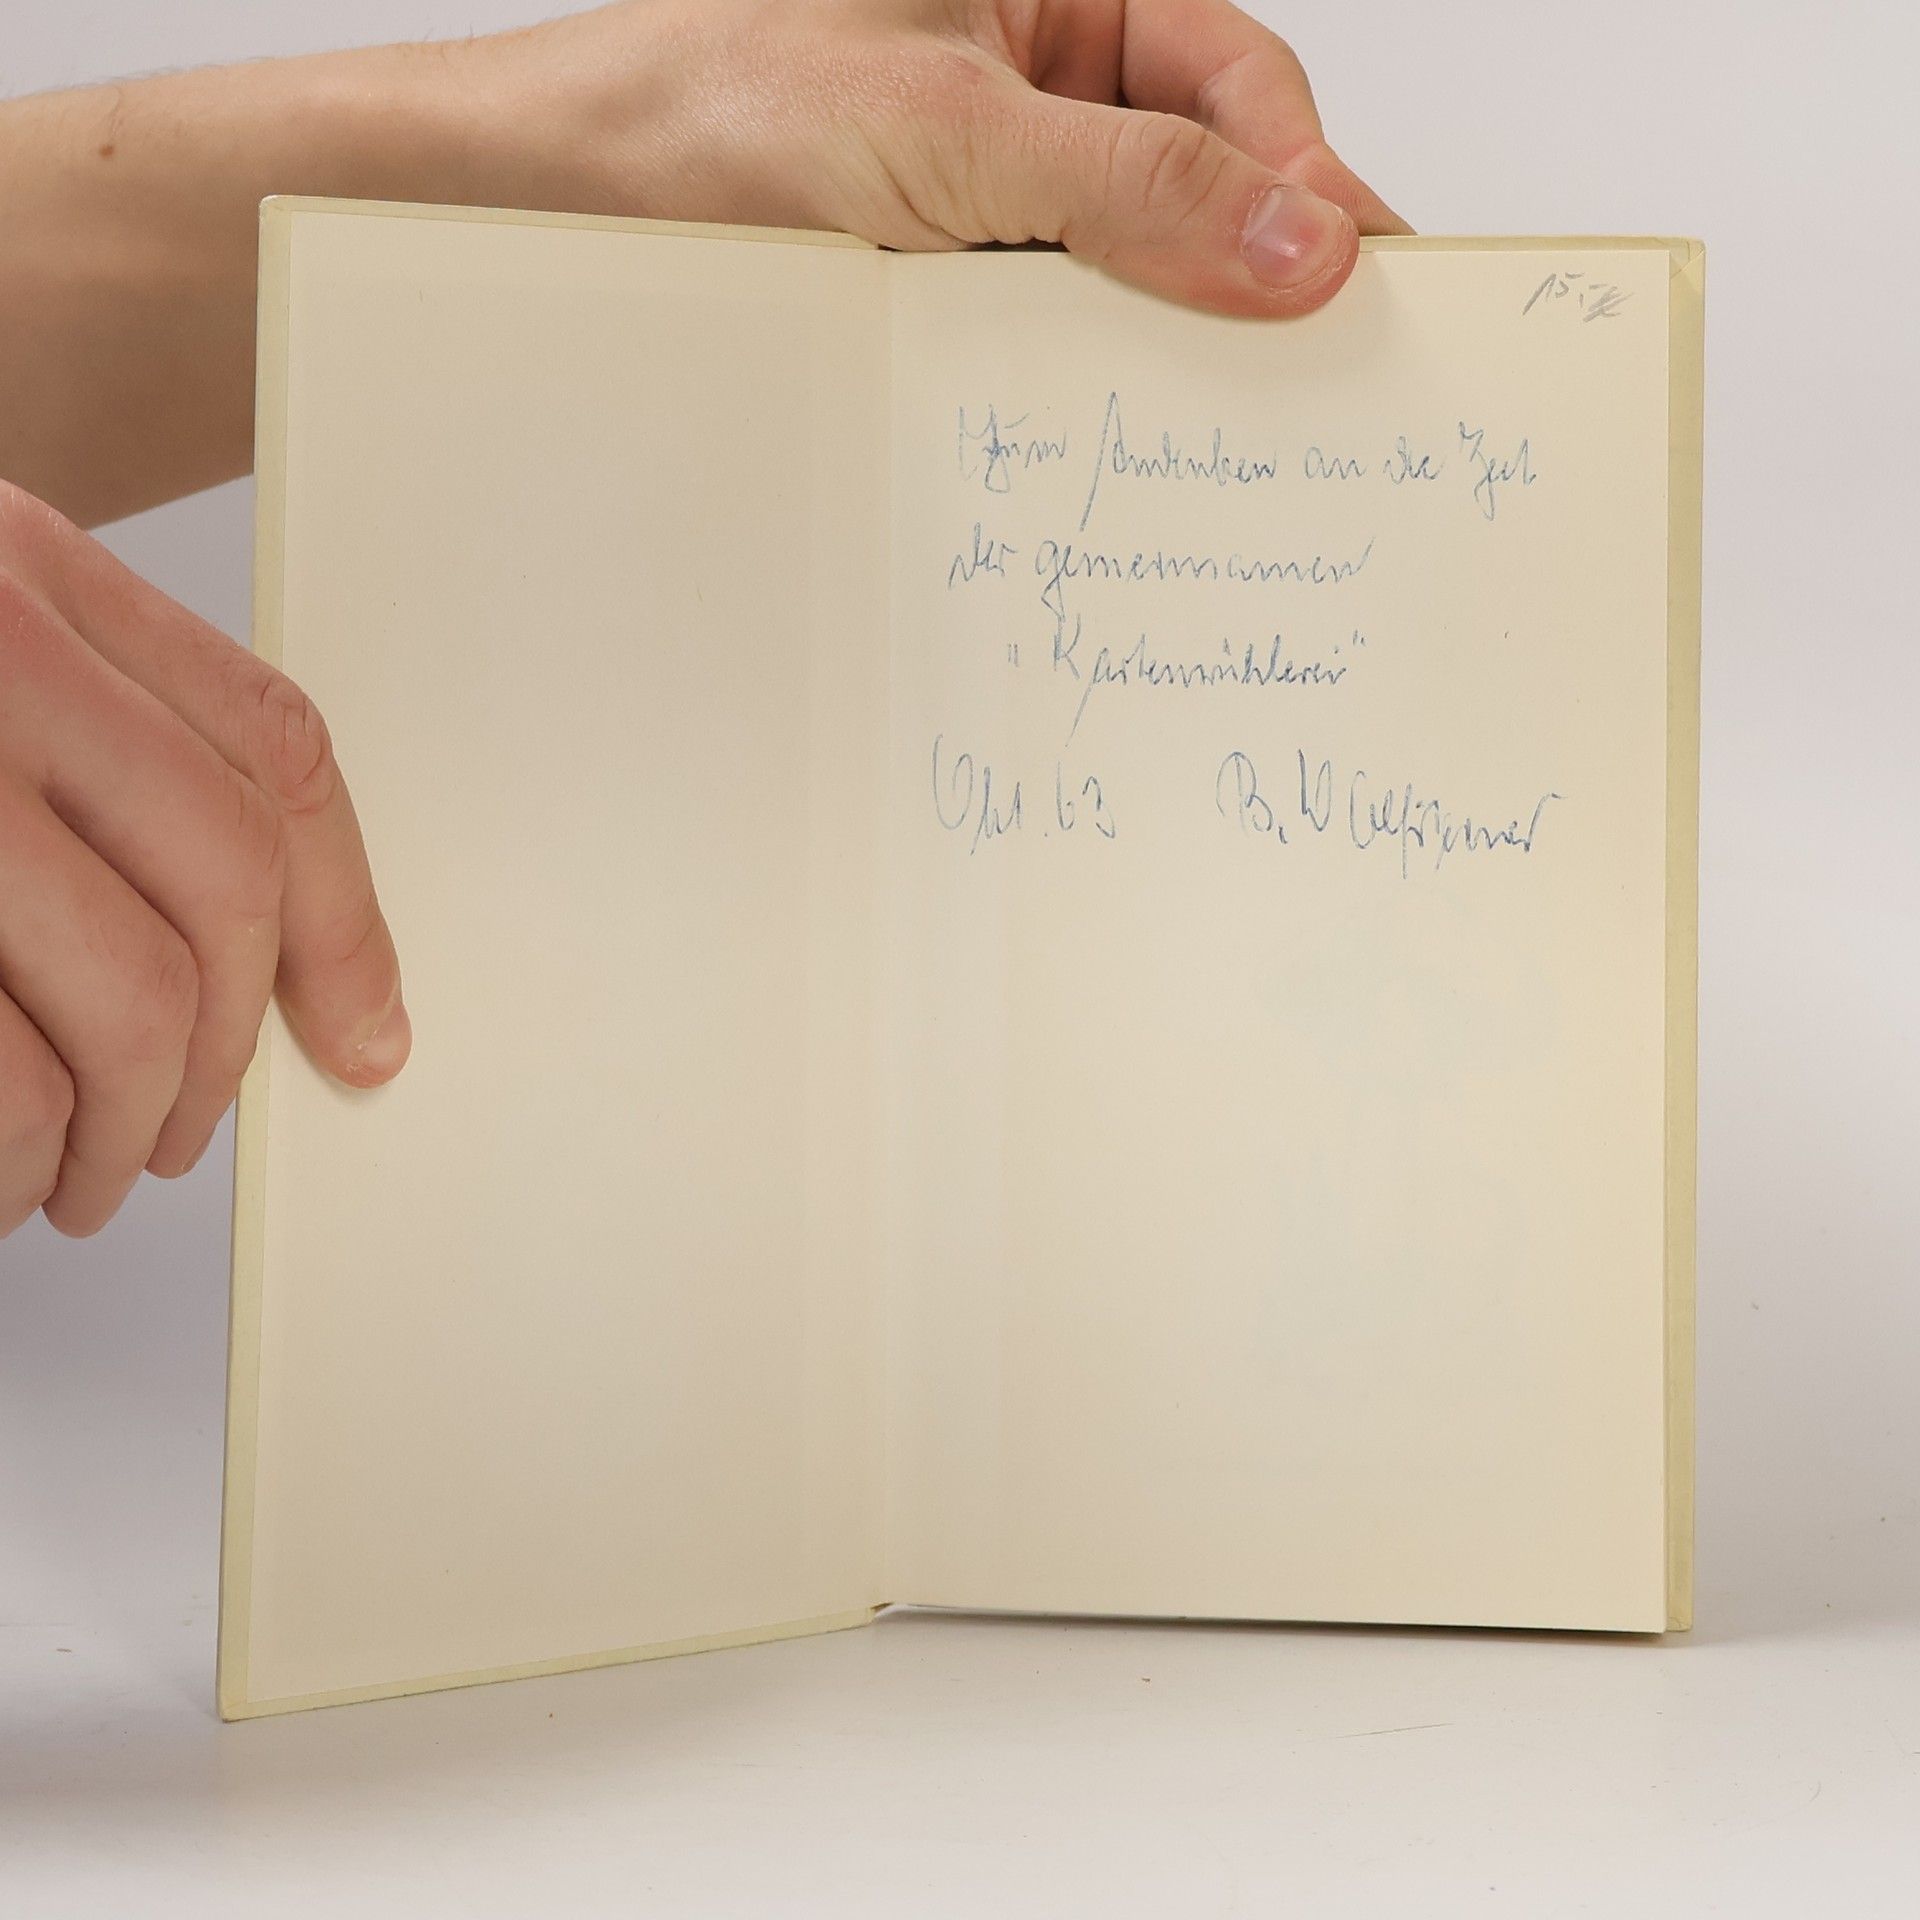 15,-
Zum Andenken an die Zeit
der gemeinsamen
"Kartenwühlerei"
Okt. 63 B. W